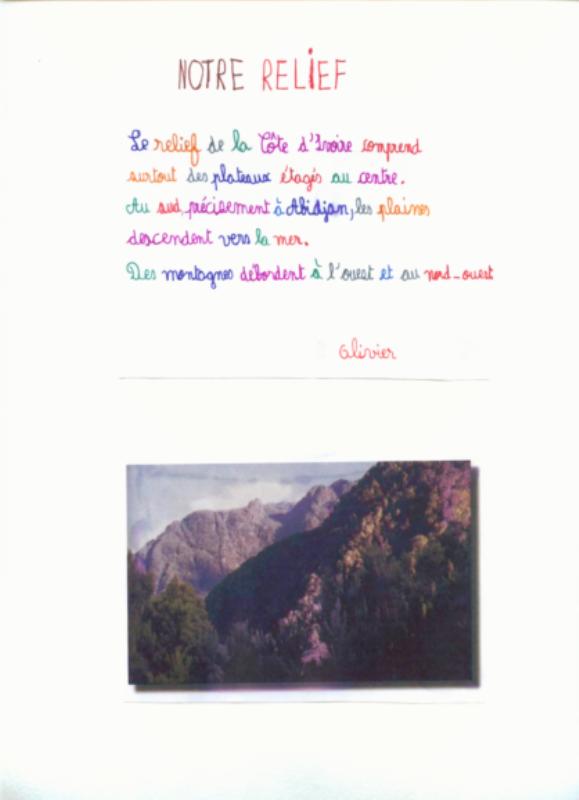 NOTRE RELIEF
Le relief de la Côte d'Ivoire comprend
surtout des plateaux étagés au centre.
Au sud, précisement à Abidjan, les plaines
descendent vers la mer.
Des montagnes débordent à l'ouest et au nord-ouest
Olivier